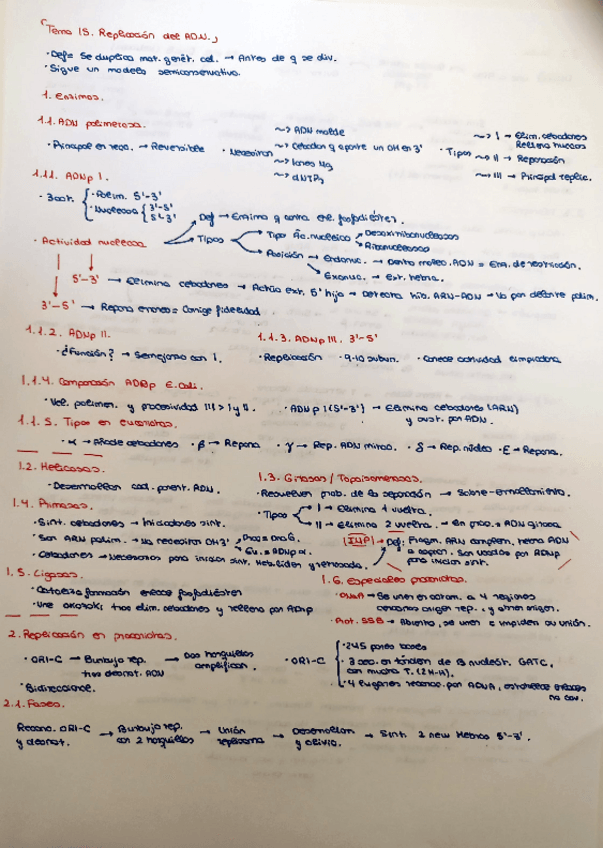 "Tema 15. Replicación del ADN."
· Def = Se duplica mat. genét. cel. → Antes de q se div.
· Sigue un modelo semiconservativo.
1. Enzimas.
1.1. ADN polimerasa.
· Principal en reac. → Reversible
· Necesitan
~> ADN molde
~> Cebador q aporte un OH en 3'
~> Iones Mg
~> dNTPs
· Tipos
~> I → Elim. cebadores
Rellena huecos
~> II → Reparación
~> III → Principal replic.
1.1.1. ADNp I.
· 3 act.
· Polim. 5'-3'
· Nucleasa 3'-5'
5'-3'
· Actividad nucleasa
Def → Enzima q corta enl. fosfodiéster.
Tipos
Tipo Ác. nucleico
Desoxirribonucleasas
Ribonucleasas
Posición
Endonuc. → Dentro moléc. ADN = Enz. de restricción.
Exonuc. → Ext. hebra.
5'-3' → Elimina cebadores → Actúa ext. 5' hijo → Detecta híb. ARN-ADN → Va por delante polim.
3'-5' → Repara errores = Corrige fidelidad.
1.1.2. ADNp II.
· ¿Función? → Semejanza con I.
1.1.3. ADNp III. 3'-5'
· Replicación · 9-10 subun. · Carece actividad
1.1.4. Comparación ADNp E. Coli.
· Vel. polimer. y procesividad III > I y II.
· ADNp I (5'-3') → Elimina cebadores (ARN)
y sust. por ADN.
1.1.5. Tipos en eucariotas.
· α → Añade cebadores · β → Repara · γ → Rep. ADN mitoc. · δ → Rep. núcleo · ε → Repara.
1.2. Helicasas.
· Desenrollan cad. parent. ADN.
1.3. Girasas / Topoisomerasas.
· Resuelven prob. de la separación → Sobre-enrollamiento.
· Tipos
I → Elimina 1 vuelta.
II → Elimina 2 vuelta. → En proc. = ADN girasa
1.4. Primasas.
· Sint. cebadores → Iniciadores sint.
· Son ARN polim. → No necesitan OH 3'
Proc = DnaG.
Eu. = ADNp α.
· Cebadores → Necesarios para iniciar sint. Heb. líder y retrasada.
IMP
Def: Fragm. ARN complem. hebra ADN
a copiar. Son usados por ADNp
para iniciar sint.
1.5. Ligasas.
· Cataliza formación enlace fosfodiéster
· Une okazaki tras elim. cebadores y relleno por ADNp
1.6. Especiales procariotas.
· DNAA → Se unen en a 4 regiones
cercanas origen rep. y abren origen.
· Prot. SSB → Abierto, se unen e impiden su unión.
2. Replicación en procariotas.
· ORI-C → Burbuja rep.
tras desnat. ADN
→ Dos horquillas
amplifican.
· Bidireccional.
· ORI-C
· 245 pares bases
· 3 sec. en tándem de 13 nucleót. GATC,
con mucha T. (2H-H).
· 4 lugares reconoc. por ADNA, establece enlaces
no cov.
2.1. Fases.
Recono. ORI-C
y desnat.
→ Burbuja rep.
con 2 horquillas
→ Unión
replisoma
→ Desenrollan
y alivio.
→ Sint. 2 new Hebras 5'-3'.